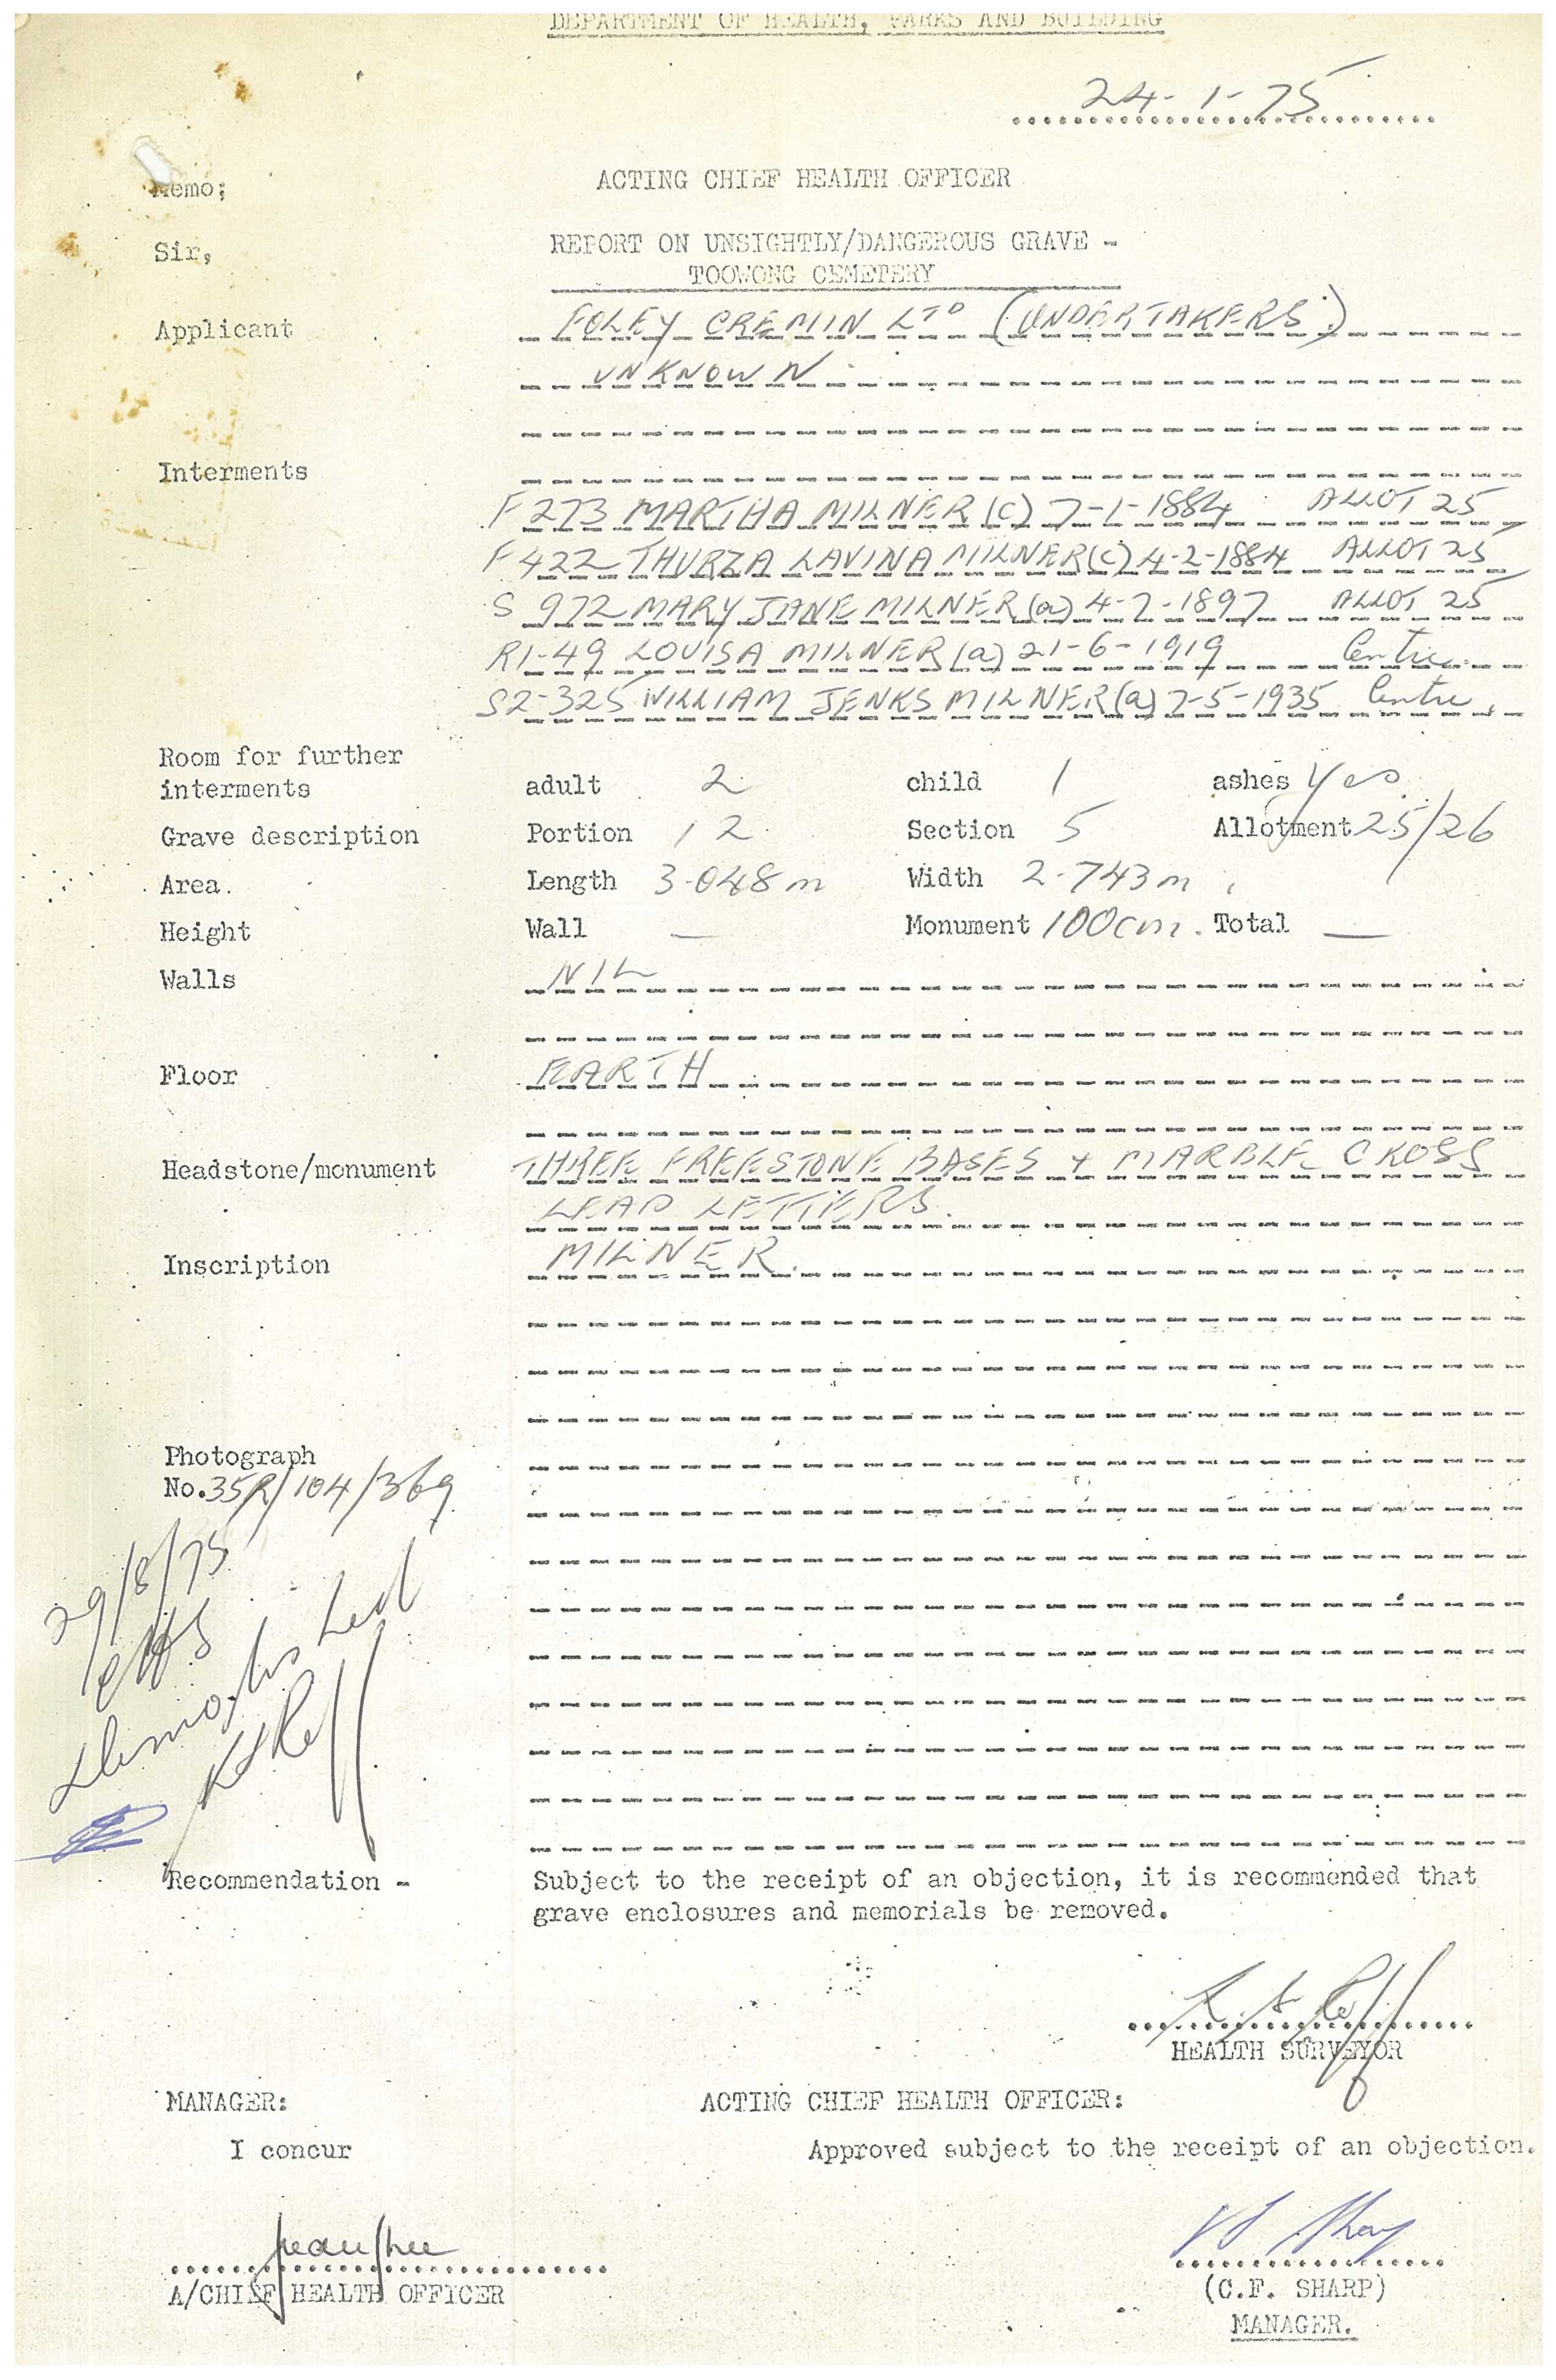 DEPARTMENT OF HEALTH, PARKS AND BUILDING
24-1-75
Memo; ACTING CHIEF HEALTH OFFICER
Sir, REPORT ON UNSIGHTLY/DANGEROUS GRAVE -
TOOWONG CEMETERY
Applicant FOLEY CREMIN LTD (UNDERTAKERS)
UNKNOWN
Interments
F 273 MARTHA MILNER (c) 7-1-1884 ALLOT 25
F 422 THURZA LAVINA MILNER (c) 4-2-1884 ALLOT 25
S 972 MARY JANE MILNER (a) 4-7-1897 ALLOT 25
R1-49 LOUISA MILNER (a) 21-6-1919 Centre
S2-325 WILLIAM JENKS MILNER (a) 7-5-1935 Centre
Room for further
interments adult 2 child 1 ashes Yes
Grave description Portion 12 Section 5 Allotment 25/26
Area. Length 3.048m Width 2.743m
Height Wall — Monument 100cm. Total —
Walls NIL
Floor EARTH
Headstone/monument THREE FREESTONE BASES + MARBLE CROSS
LEAD LETTERS.
Inscription MILNER.
Photograph
No. 35R/104/369
29/8/75
Recommendation - Subject to the receipt of an objection, it is recommended that
grave enclosures and memorials be removed.
HEALTH SURVEYOR
MANAGER: ACTING CHIEF HEALTH OFFICER:
I concur Approved subject to the receipt of an objection.
A/CHIEF HEALTH OFFICER (C.F. SHARP)
MANAGER.